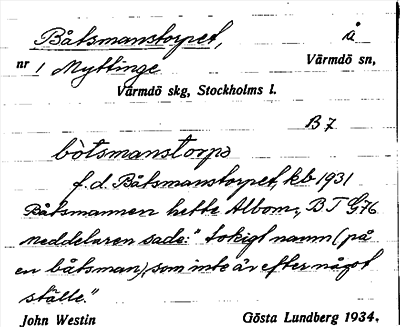 Båtsmanstorpet, å
nr 1 Myttinge Värmdö sn,
Värmdö skg, Stockholms l.
B 7
bòtsmanstorpə
f.d. Båtsmanstorpet, kb 1931
Båtsmannen hette Albom, BT G76
Meddelaren sade: "tokigt namn (på
en båtsman), som inte är efter något
ställe."
John Westin Gösta Lundberg 1934.